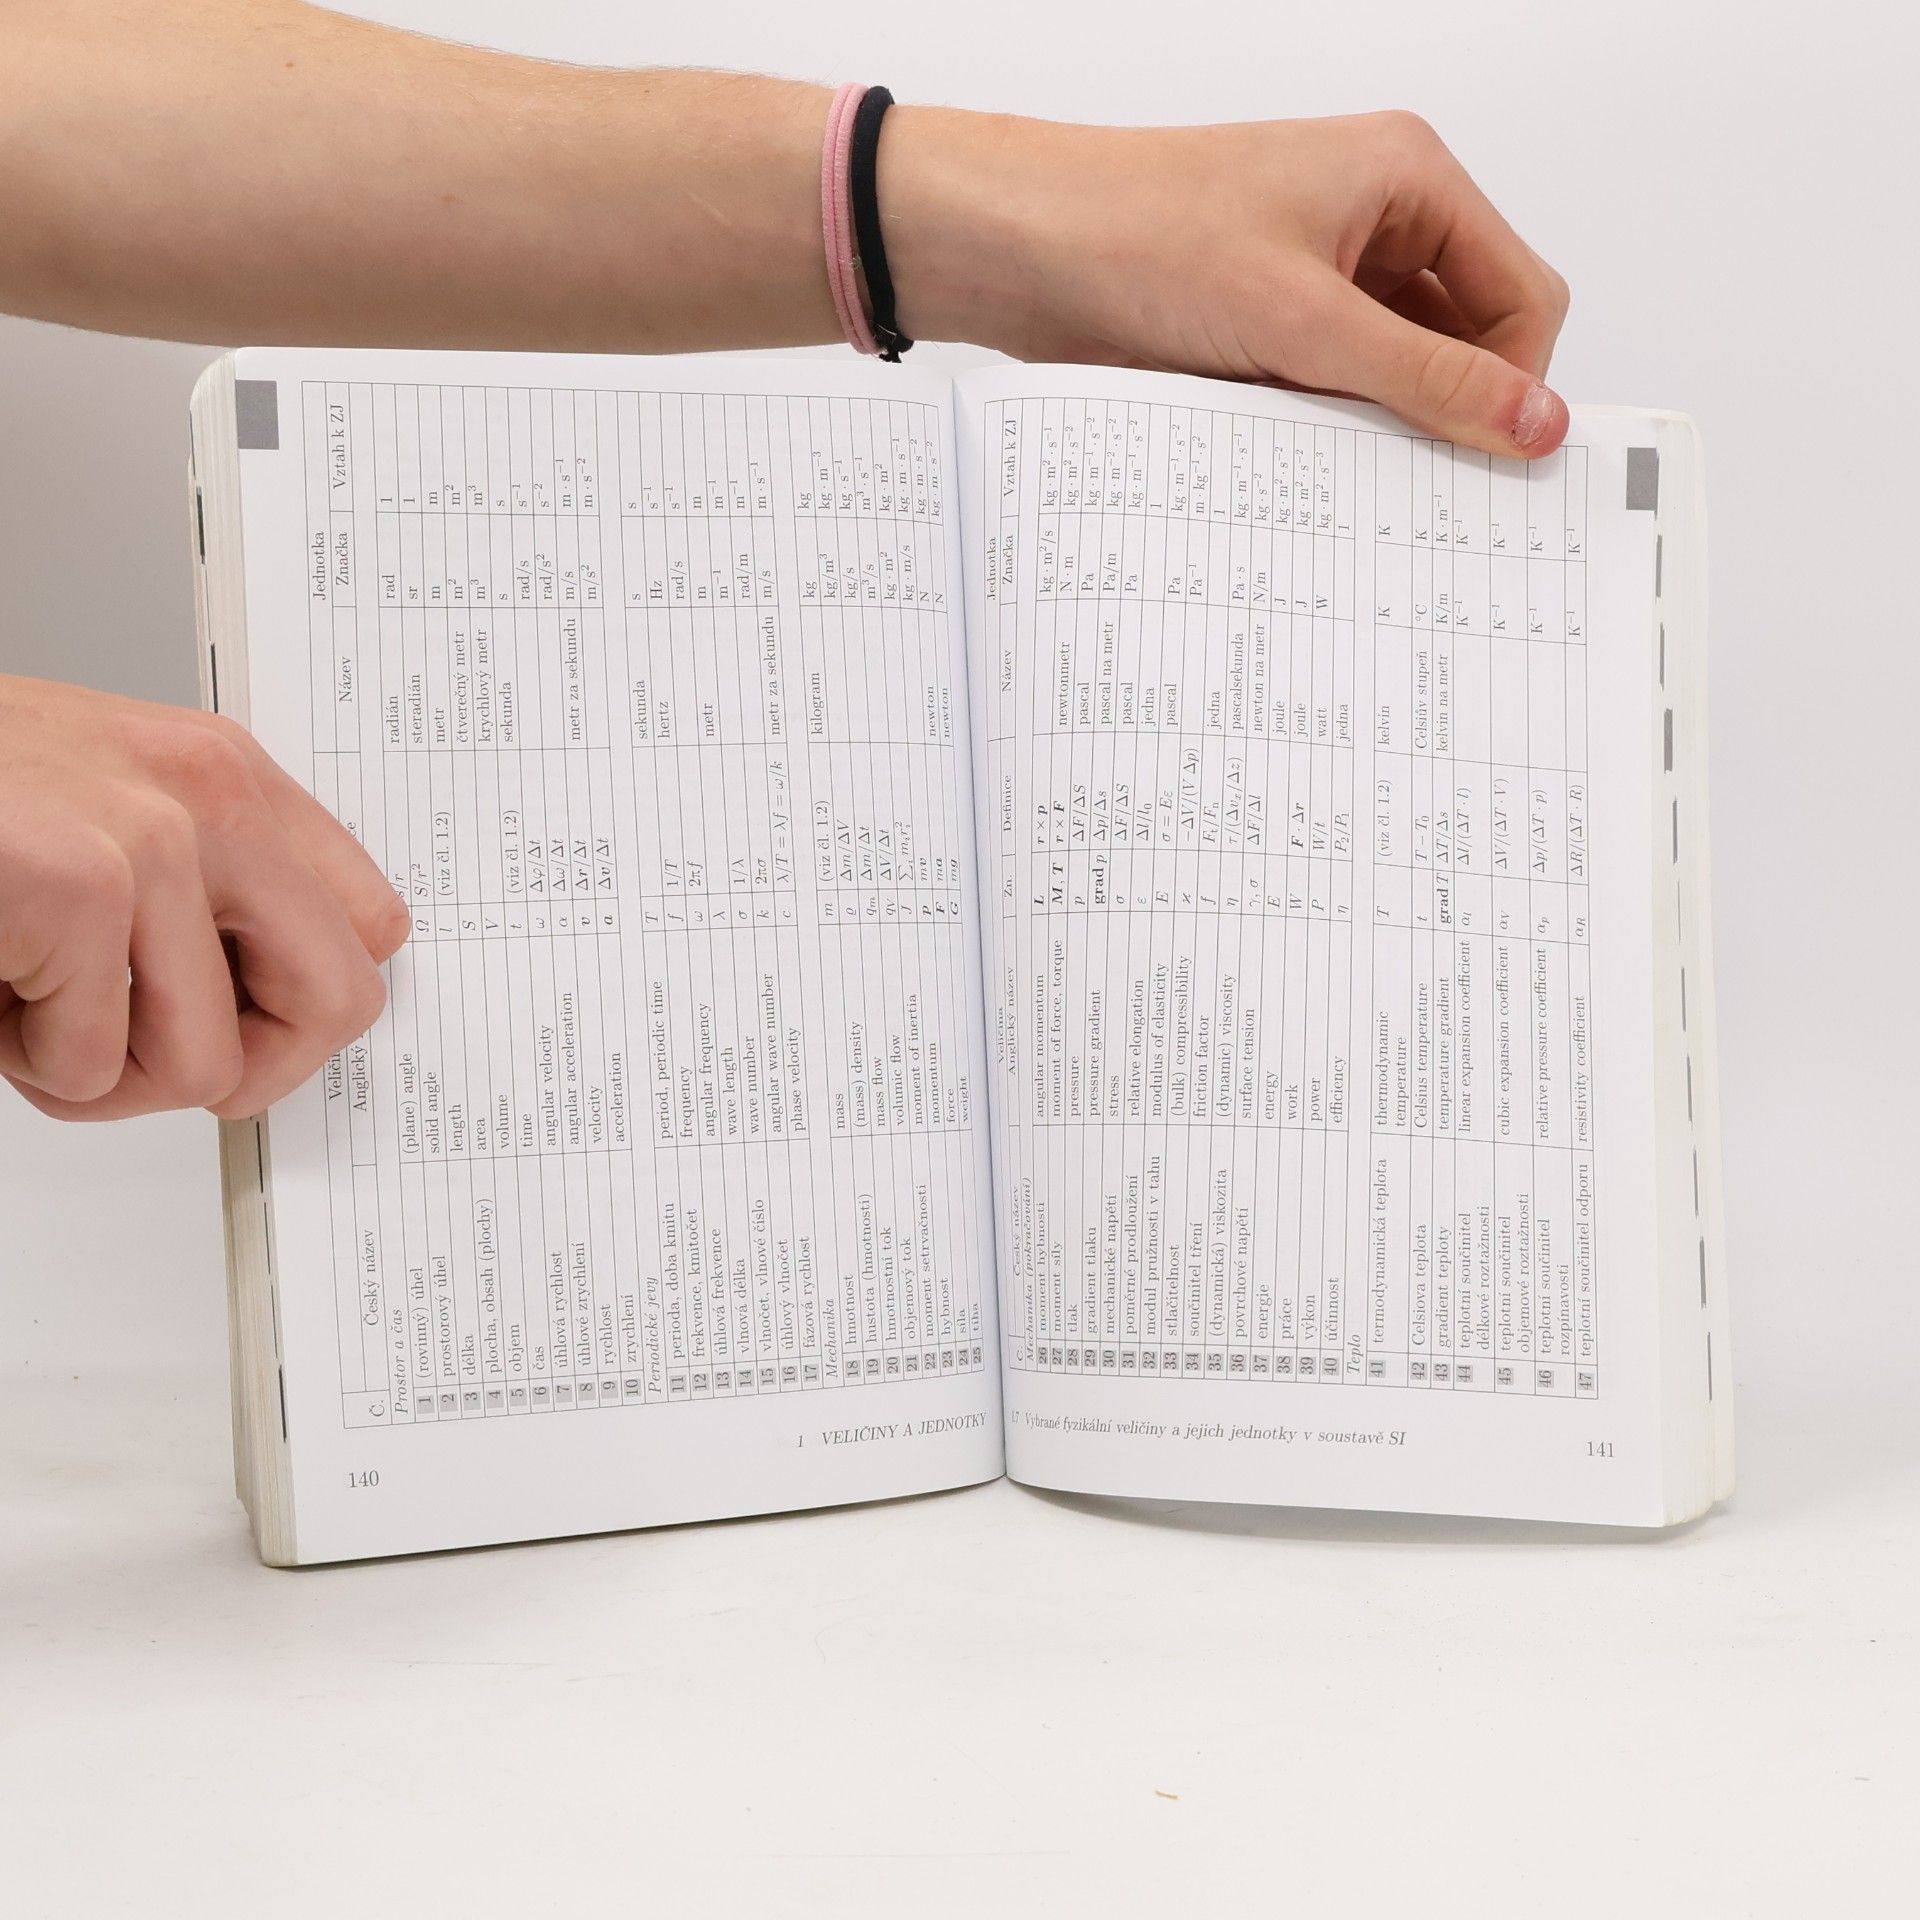 Č.
Český název
Anglický
Jednotka
Název
Značka
Vztah k ZJ
Prostor a čas
1 (rovinný) úhel (plane) angle s/r radián rad 1
2 prostorový úhel solid angle Ω S/r² steradián sr 1
3 délka length l (viz čl. 1.2) metr m m
4 plocha, obsah (plochy) area S čtverečný metr m² m²
5 objem volume V krychlový metr m³ m³
6 čas time t (viz čl. 1.2) sekunda s s
7 úhlová rychlost angular velocity ω Δφ/Δt rad/s s⁻¹
8 úhlové zrychlení angular acceleration α Δω/Δt rad/s² s⁻²
9 rychlost velocity v Δr/Δt metr za sekundu m/s m · s⁻¹
10 zrychlení acceleration a Δv/Δt m/s² m · s⁻²
Periodické jevy
11 perioda, doba kmitu period, periodic time T sekunda s s
12 frekvence, kmitočet frequency f 1/T hertz Hz s⁻¹
13 úhlová frekvence angular frequency ω 2πf rad/s s⁻¹
14 vlnová délka wave length λ metr m m
15 vlnočet, vlnové číslo wave number σ 1/λ m⁻¹ m⁻¹
16 úhlový vlnočet angular wave number k 2πσ rad/m m⁻¹
17 fázová rychlost phase velocity c λ/T = λf = ω/k metr za sekundu m/s m · s⁻¹
Mechanika
18 hmotnost mass m (viz čl. 1.2) kilogram kg kg
19 hustota (hmotnosti) (mass) density ϱ Δm/ΔV kg/m³ kg · m⁻³
20 hmotnostní tok mass flow qₘ Δm/Δt kg/s kg · s⁻¹
21 objemový tok volumic flow qV ΔV/Δt m³/s m³ · s⁻¹
22 moment setrvačnosti moment of inertia J ∑ᵢ mᵢrᵢ² kg · m² kg · m²
23 hybnost momentum p mv kg · m/s kg · m · s⁻¹
24 síla force F ma newton N kg · m · s⁻²
25 tíha weight G mg newton N kg · m · s⁻²
1 VELIČINY A JEDNOTKY
140
Veličina
Jednotka
Č. Český název Anglický název Zn. Definice Název Značka Vztah k ZJ
Mechanika (pokračování)
26 moment hybnosti angular momentum L r × p kg · m²/s kg · m² · s⁻¹
27 moment síly moment of force, torque M, T r × F newtonmetr N · m kg · m² · s⁻²
28 tlak pressure p ΔF/ΔS pascal Pa kg · m⁻¹ · s⁻²
29 gradient tlaku pressure gradient grad p Δp/Δs pascal na metr Pa/m kg · m⁻² · s⁻²
30 mechanické napětí stress σ ΔF/ΔS pascal Pa kg · m⁻¹ · s⁻²
31 poměrné prodloužení relative elongation ε Δl/l₀ jedna 1
32 modul pružnosti v tahu modulus of elasticity E σ = Eε pascal Pa kg · m⁻¹ · s⁻²
33 stlačitelnost (bulk) compressibility ϰ −ΔV/(V Δp) Pa⁻¹ m · kg⁻¹ · s²
34 součinitel tření friction factor f Fₜ/Fₙ jedna 1
35 (dynamická) viskozita (dynamic) viscosity η τ/(Δvₓ/Δz) pascalsekunda Pa · s kg · m⁻¹ · s⁻¹
36 povrchové napětí surface tension γ, σ ΔF/Δl newton na metr N/m kg · s⁻²
37 energie energy E joule J kg · m² · s⁻²
38 práce work W F · Δr joule J kg · m² · s⁻²
39 výkon power P W/t watt W kg · m² · s⁻³
40 účinnost efficiency η P₂/P₁ jedna 1
Teplo
41 termodynamická teplota thermodynamic T (viz čl. 1.2) kelvin K K
temperature
42 Celsiova teplota Celsius temperature t T − T₀ Celsiův stupeň °C K
43 gradient teploty temperature gradient grad T ΔT/Δs kelvin na metr K/m K · m⁻¹
44 teplotní součinitel linear expansion coefficient αₗ Δl/(ΔT · l) K⁻¹ K⁻¹
délkové roztažnosti
45 teplotní součinitel cubic expansion coefficient αV ΔV/(ΔT · V) K⁻¹ K⁻¹
objemové roztažnosti
46 teplotní součinitel relative pressure coefficient αₚ Δp/(ΔT · p) K⁻¹ K⁻¹
rozpínavosti
47 teplotní součinitel odporu resistivity coefficient αR ΔR/(ΔT · R) K⁻¹ K⁻¹
1.7 Vybrané fyzikální veličiny a jejich jednotky v soustavě SI
141